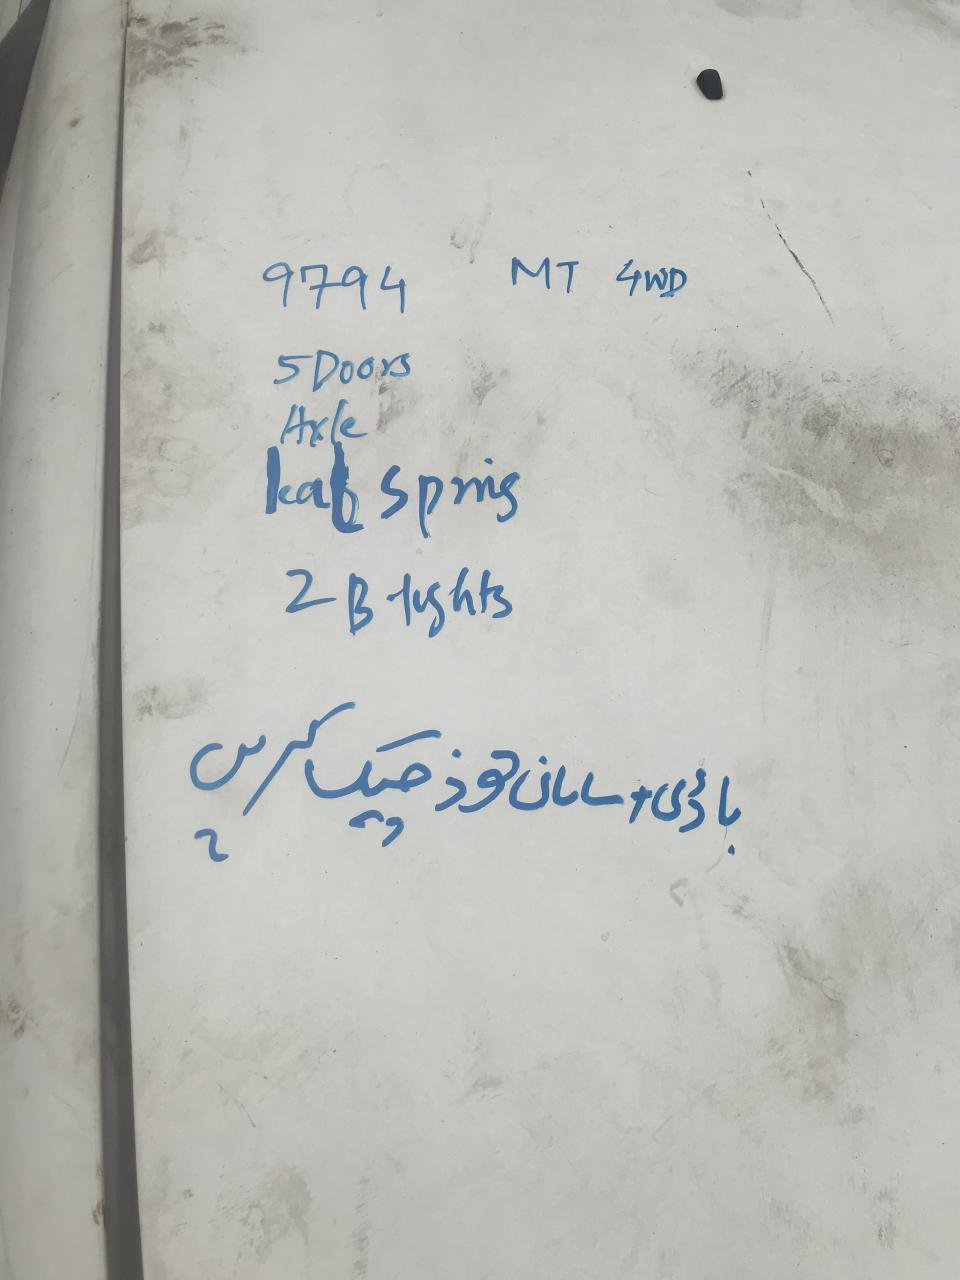 9794 MT 4WD
5 Doors
Axle
Leaf Spring
2 B lights
باڈی + سامان خود چیک کریں